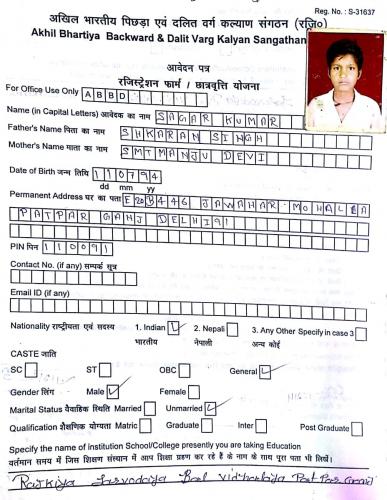 Reg. No. : S-31637
अखिल भारतीय पिछड़ा एवं दलित वर्ग कल्याण संगठन (रजि०)
Akhil Bhartiya Backward & Dalit Varg Kalyan Sangathan
आवेदन पत्र
रजिस्ट्रेशन फार्म / छात्रवृत्ति योजना
For Office Use Only A B B D
Name (in Capital Letters) आवेदक का नाम SAGAR KUMAR
Father's Name पिता का नाम SHKARAN SINGH
Mother's Name माता का नाम SMTMANJU DEVI
Date of Birth जन्म तिथि 110794
dd mm yy
Permanent Address घर का पता E20B446 JAWAHAR MOHALLA
PATPAR GANJ DELHI91
PIN पिन 110091
Contact No. (if any) सम्पर्क सूत्र
Email ID (if any)
Nationality राष्ट्रीयता एवं सदस्य 1. Indian ✓ 2. Nepali 3. Any Other Specify in case 3
भारतीय नेपाली अन्य कोई
CASTE जाति
SC ST OBC General ✓
Gender लिंग Male ✓ Female
Marital Status वैवाहिक स्थिति Married Unmarried ✓
Qualification शैक्षणिक योग्यता Matric Graduate Inter Post Graduate
Specify the name of institution School/College presently you are taking Education
वर्तमान समय में जिस शिक्षण संस्थान में आप शिक्षा ग्रहण कर रहे हैं के नाम के साथ पूरा पता भी लिखें।
Rajkiya Sarvodaya Bal Vidhalaya